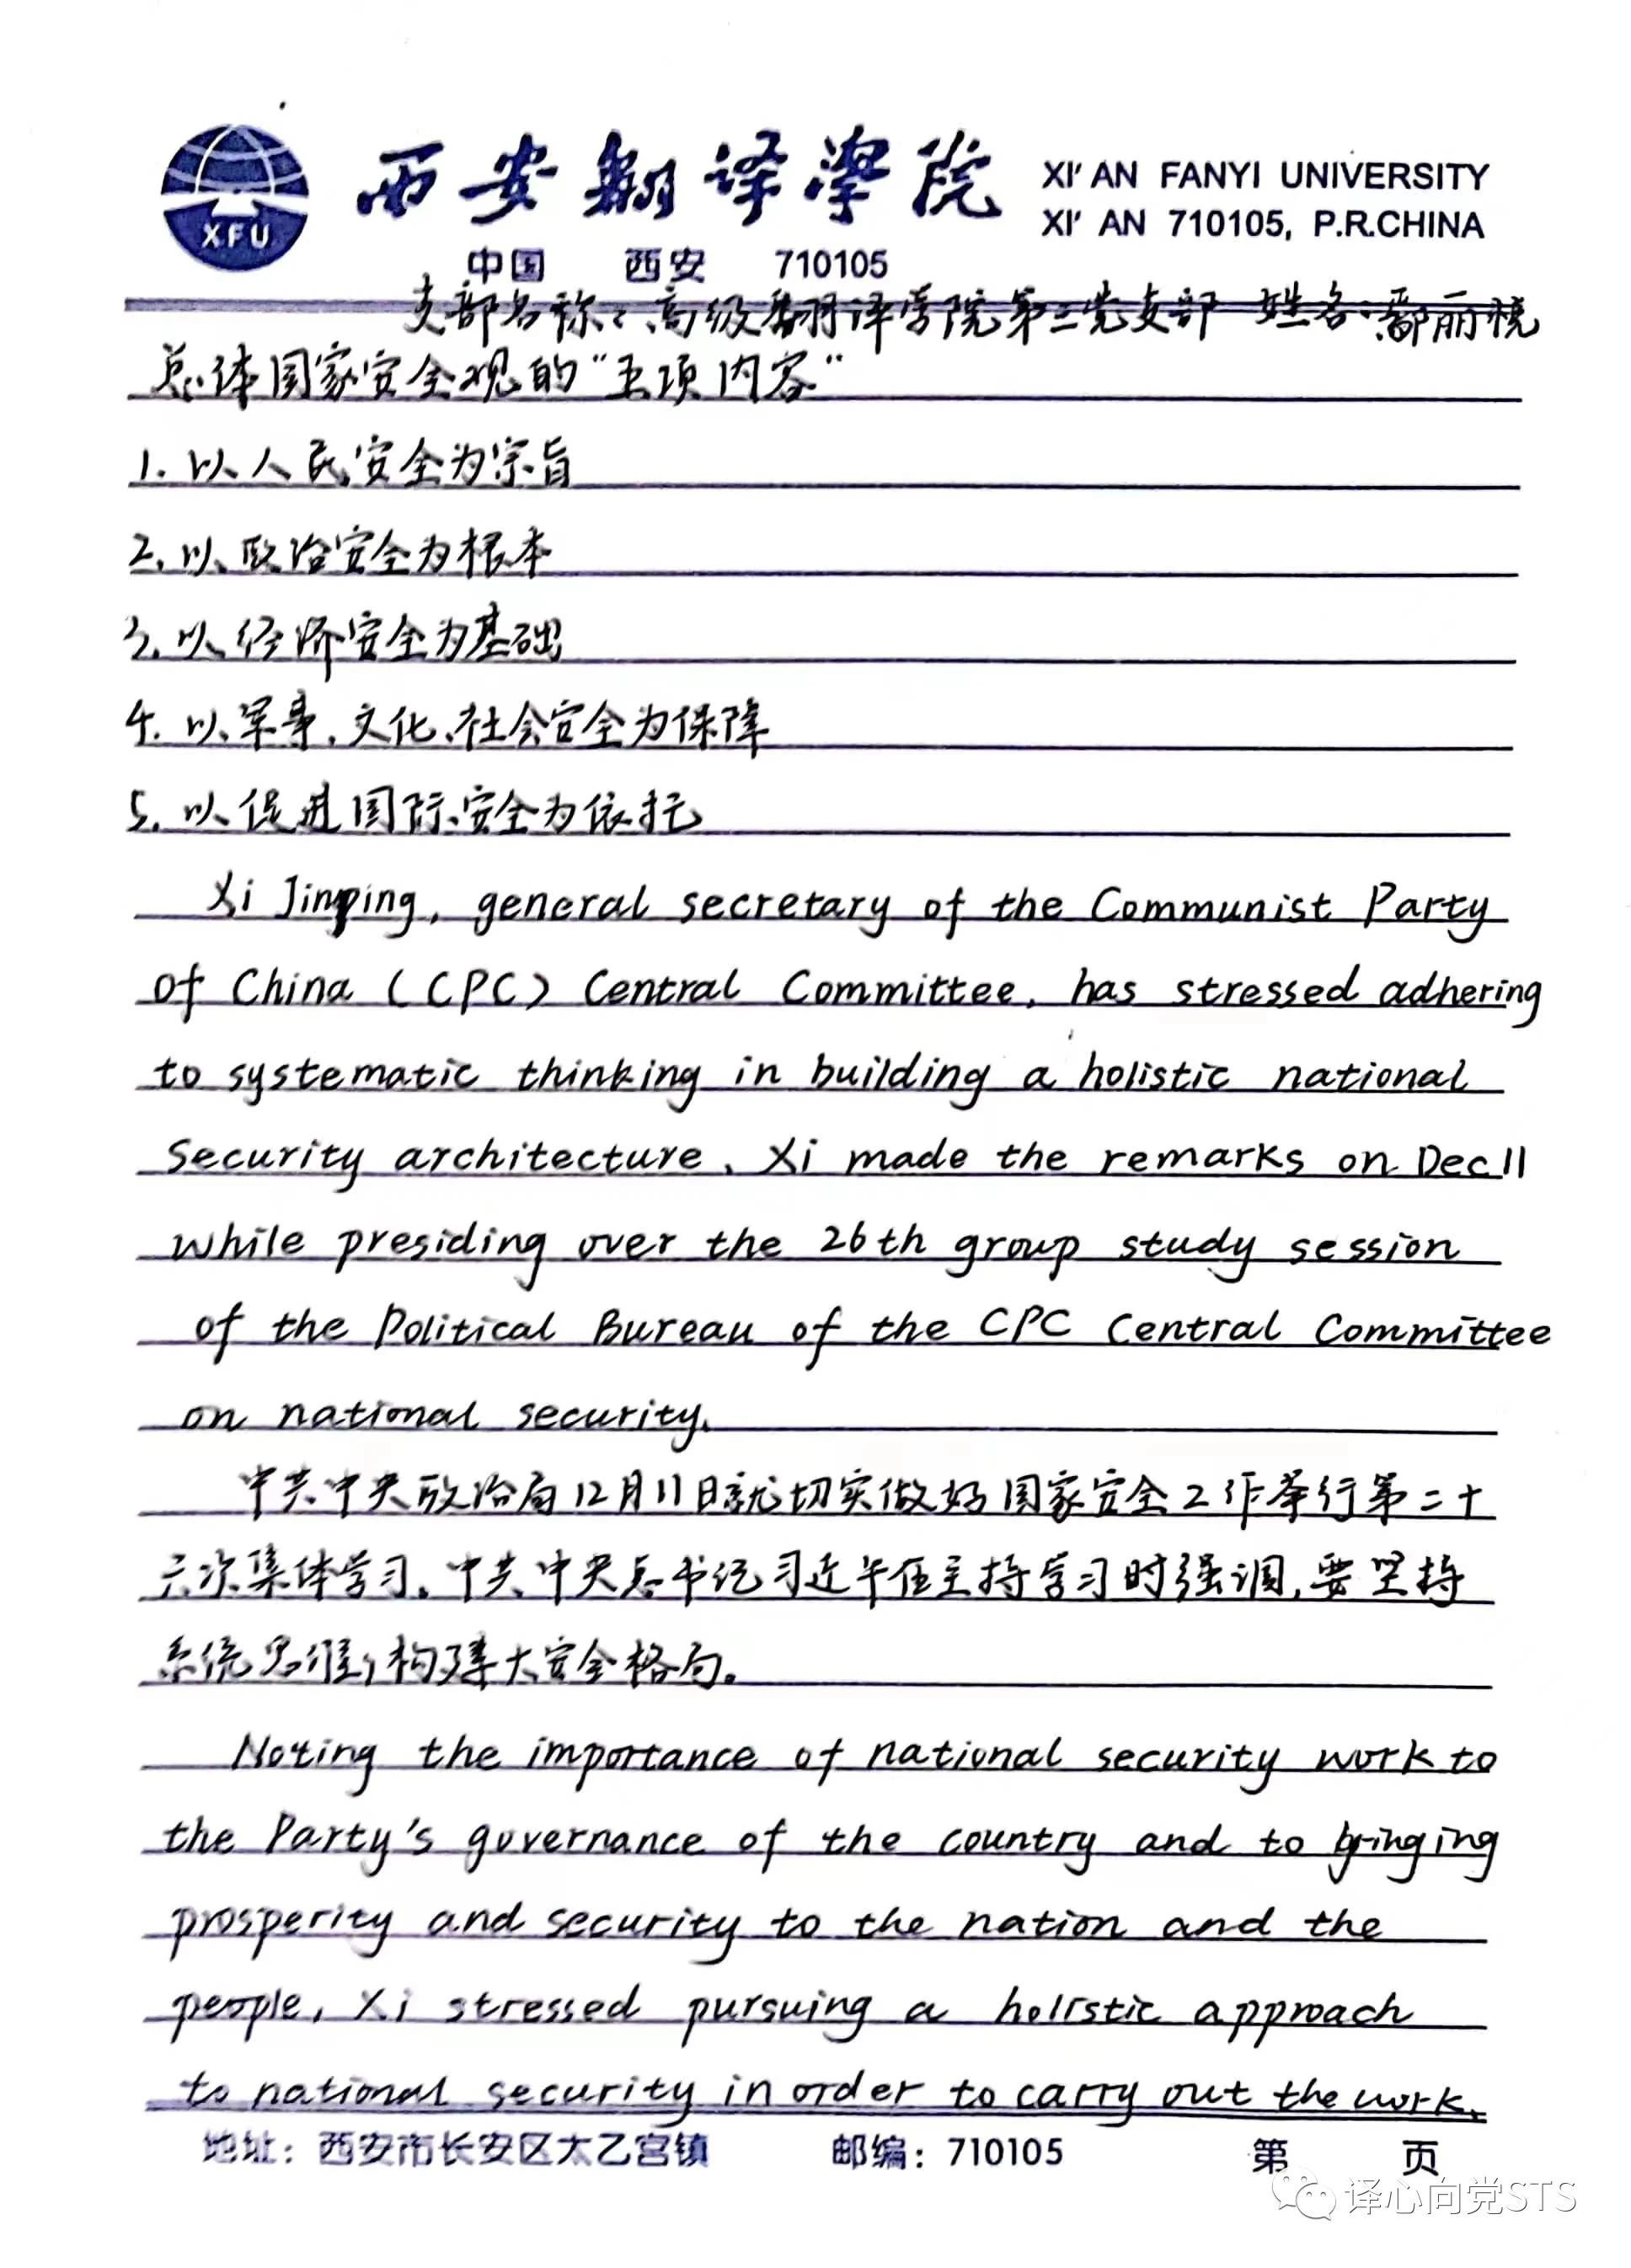 XFU
西安翻译学院
XI' AN FANYI UNIVERSITY
XI' AN 710105, P.R.CHINA
中国 西安 710105
支部名称:高级翻译学院第三党支部 姓名:鄢丽
总体国家安全观的“五项内容”
1. 以人民安全为宗旨
2. 以政治安全为根本
3. 以经济安全为基础
4. 以军事、文化、社会安全为保障
5. 以促进国际安全为依托
Xi Jinping, general secretary of the Communist Party
of China (CPC) Central Committee, has stressed adhering
to systematic thinking in building a holistic national
Security architecture. Xi made the remarks on Dec 11
while presiding over the 26th group study session
of the Political Bureau of the CPC Central Committee
on national security.
中共中央政治局12月11日就切实做好国家安全工作举行第二十
六次集体学习。中共中央总书记习近平在主持学习时强调,要坚持
系统思维,构建大安全格局。
Noting the importance of national security work to
the Party's governance of the country and to bringing
prosperity and security to the nation and the
people, Xi stressed pursuing a holistic approach
to national security in order to carry out the work.
地址: 西安市长安区太乙宫镇 邮编: 710105 第 页
译心向党STS